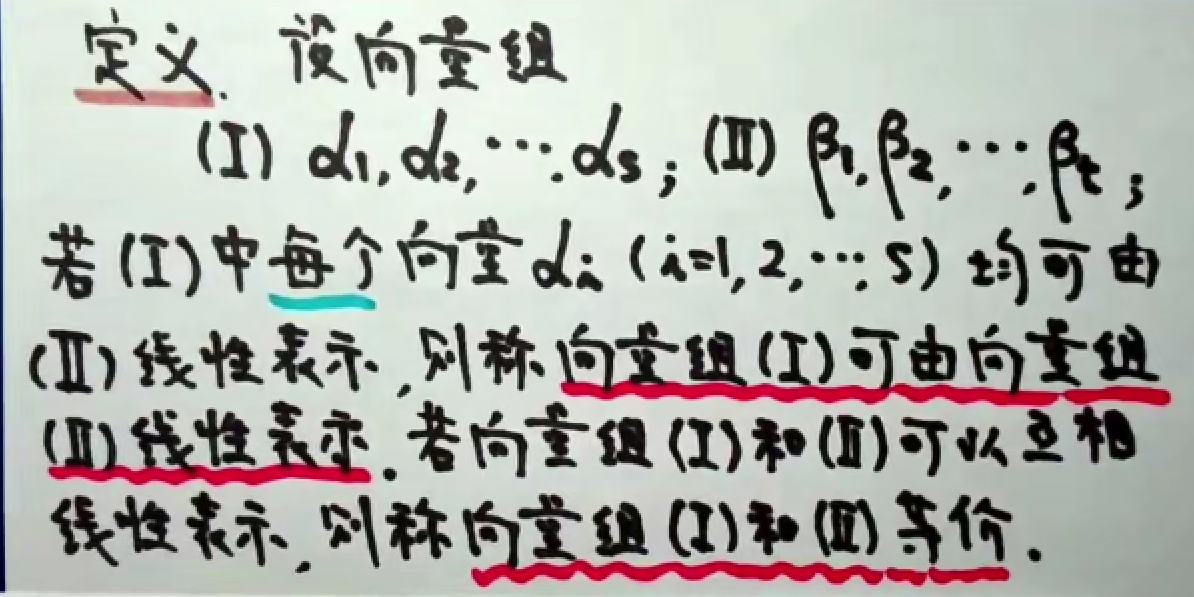 定义. 设向量组
(Ⅰ) α₁, α₂, ⋯, αₛ; (Ⅱ) β₁, β₂, ⋯, βₜ;
若(Ⅰ)中每个向量αᵢ (i=1,2,⋯,s) 均可由
(Ⅱ)线性表示,则称向量组(Ⅰ)可由向量组
(Ⅱ)线性表示.若向量组(Ⅰ)和(Ⅱ)可以互相
线性表示,则称向量组(Ⅰ)和(Ⅱ)等价.